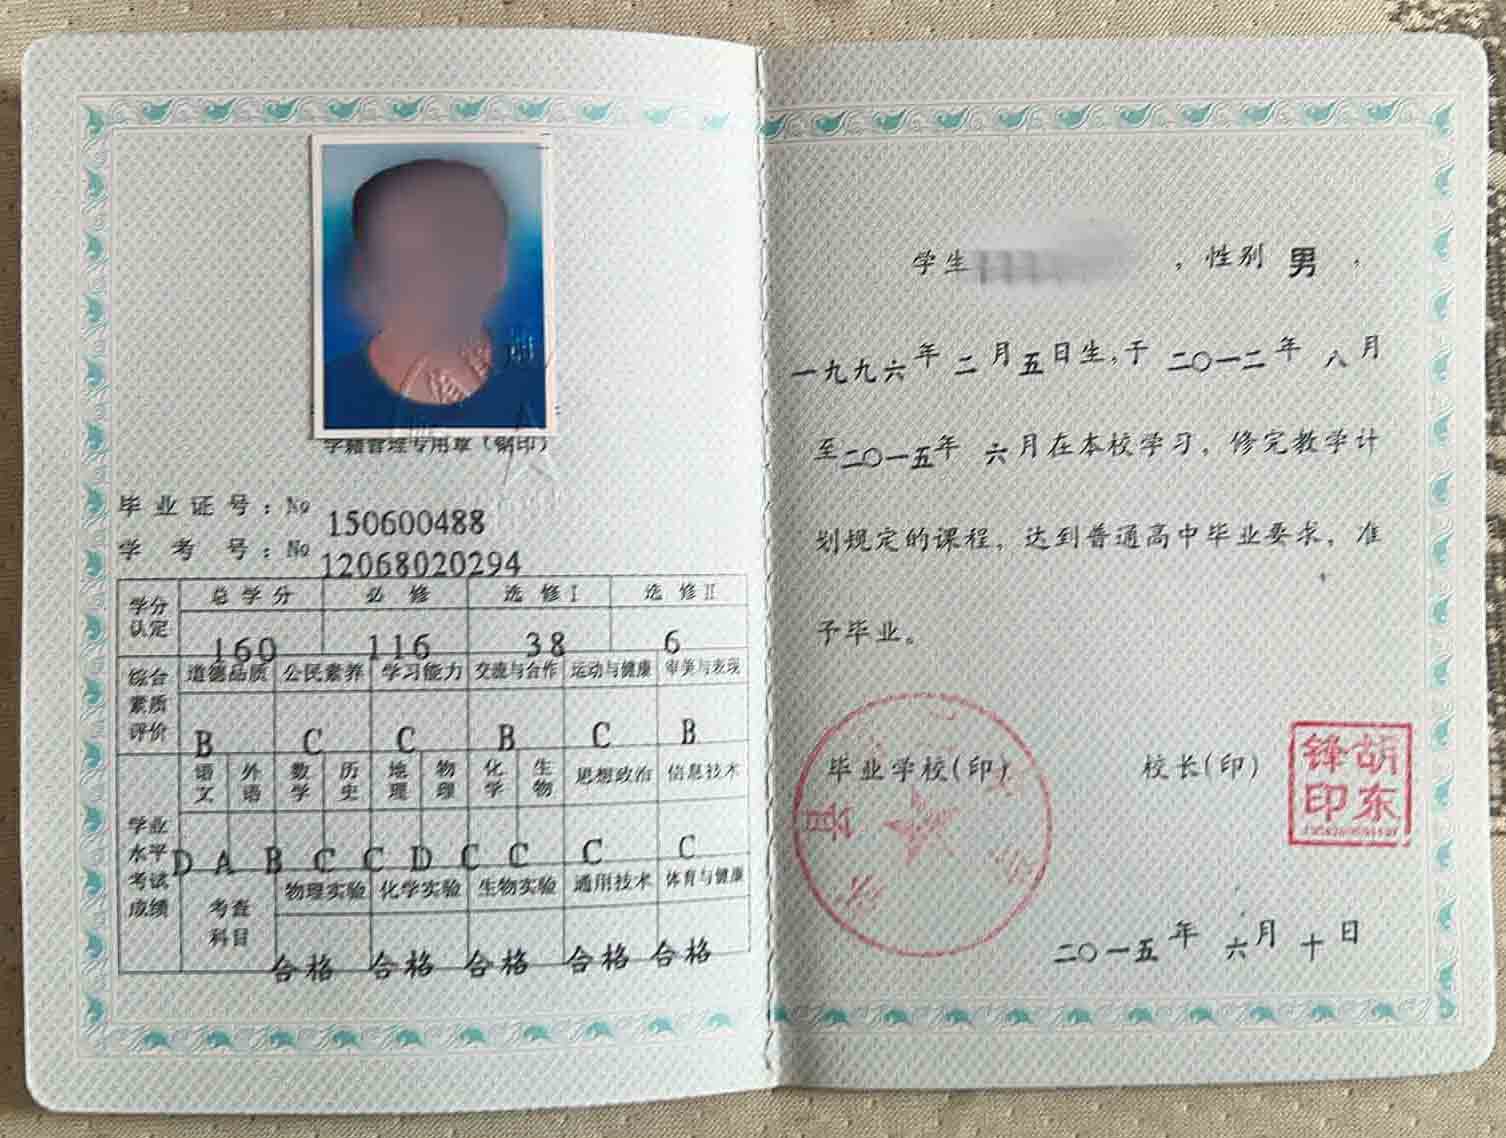 学籍管理专用章（钢印）
毕业证号：No 150600488
学考号：No 12068020294
学分认定 总学分 必修 选修Ⅰ 选修Ⅱ
160 116 38 6
综合素质评价 道德品质 公民素养 学习能力 交流与合作 运动与健康 审美与表现
B C C B C B
学业水平考试成绩 语文 外语 数学 历史 地理 物理 化学 生物 思想政治 信息技术
D A B C C D C C C C
考查科目 物理实验 化学实验 生物实验 通用技术 体育与健康
合格 合格 合格 合格 合格
学生 ，性别 男 ，
一九九六年 二月五日生,于 二〇一二年 八月
至二〇一五年 六月在本校学习，修完教学计
划规定的课程，达到普通高中毕业要求，准
予毕业。
毕业学校(印) 校长(印)
胡东锋印
二〇一五年 六月 十日